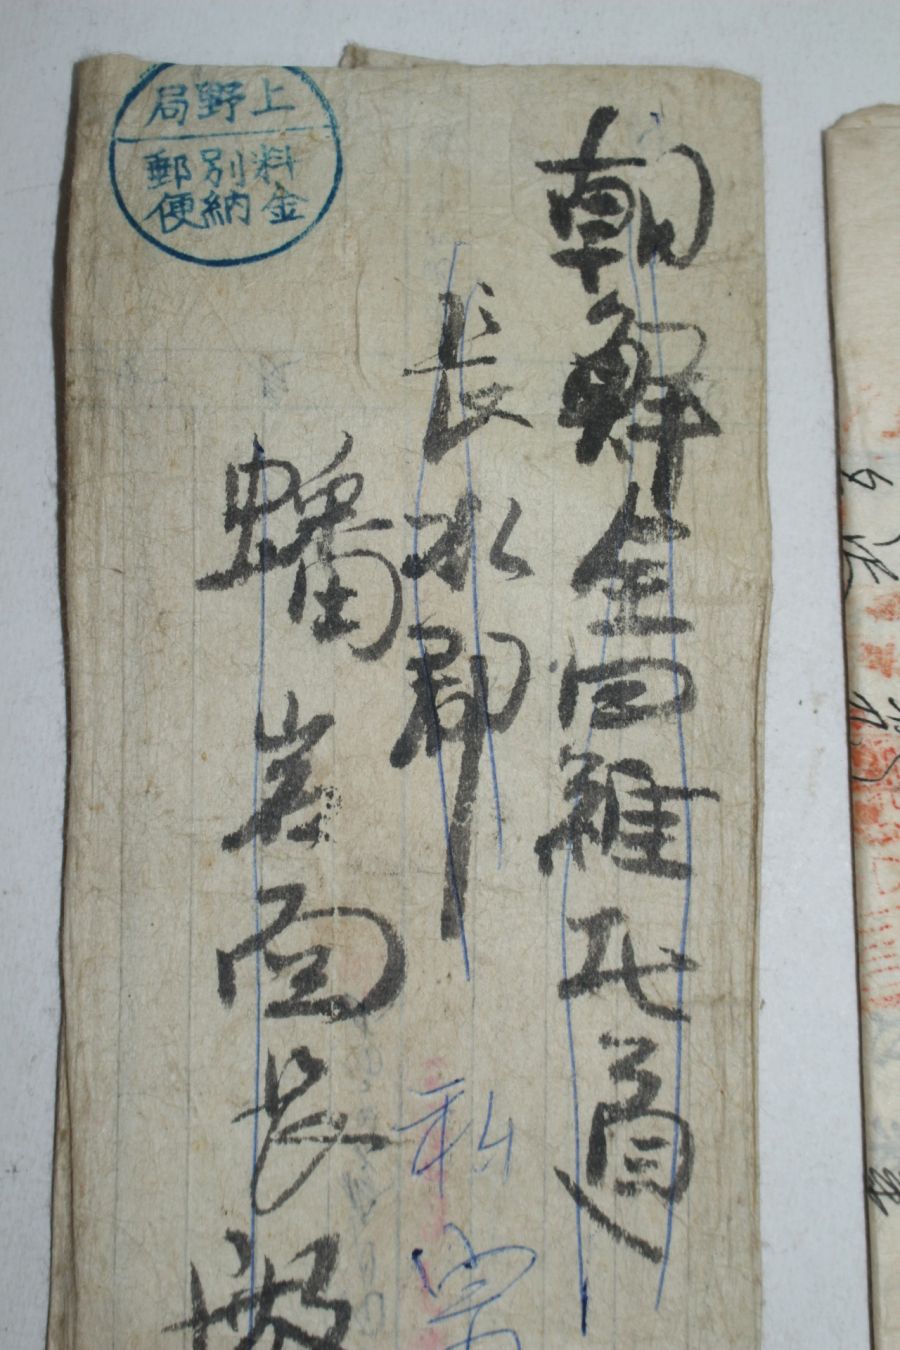 上野局
料金
別納
郵便
朝鮮全羅北道
長水郡
蟠岩面長殿
私